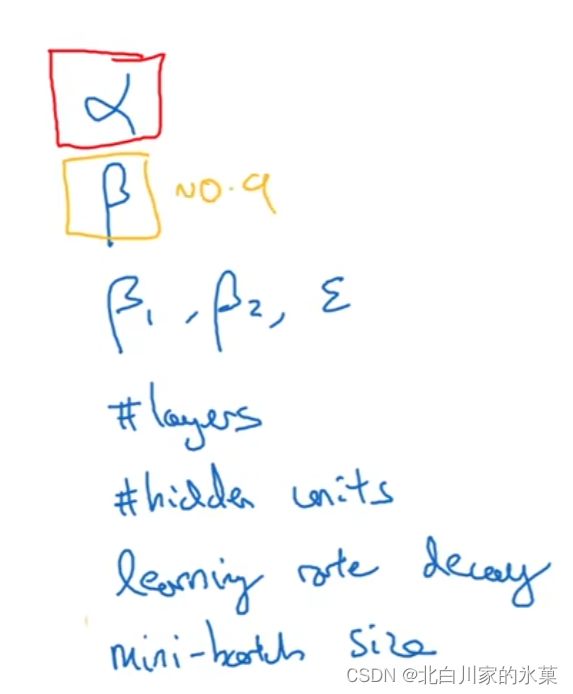 α
β ~0.9
β1, β2, ε
#layers
#hidden units
learning rate decay
mini-batch size
CSDN @北白川家的氷菓